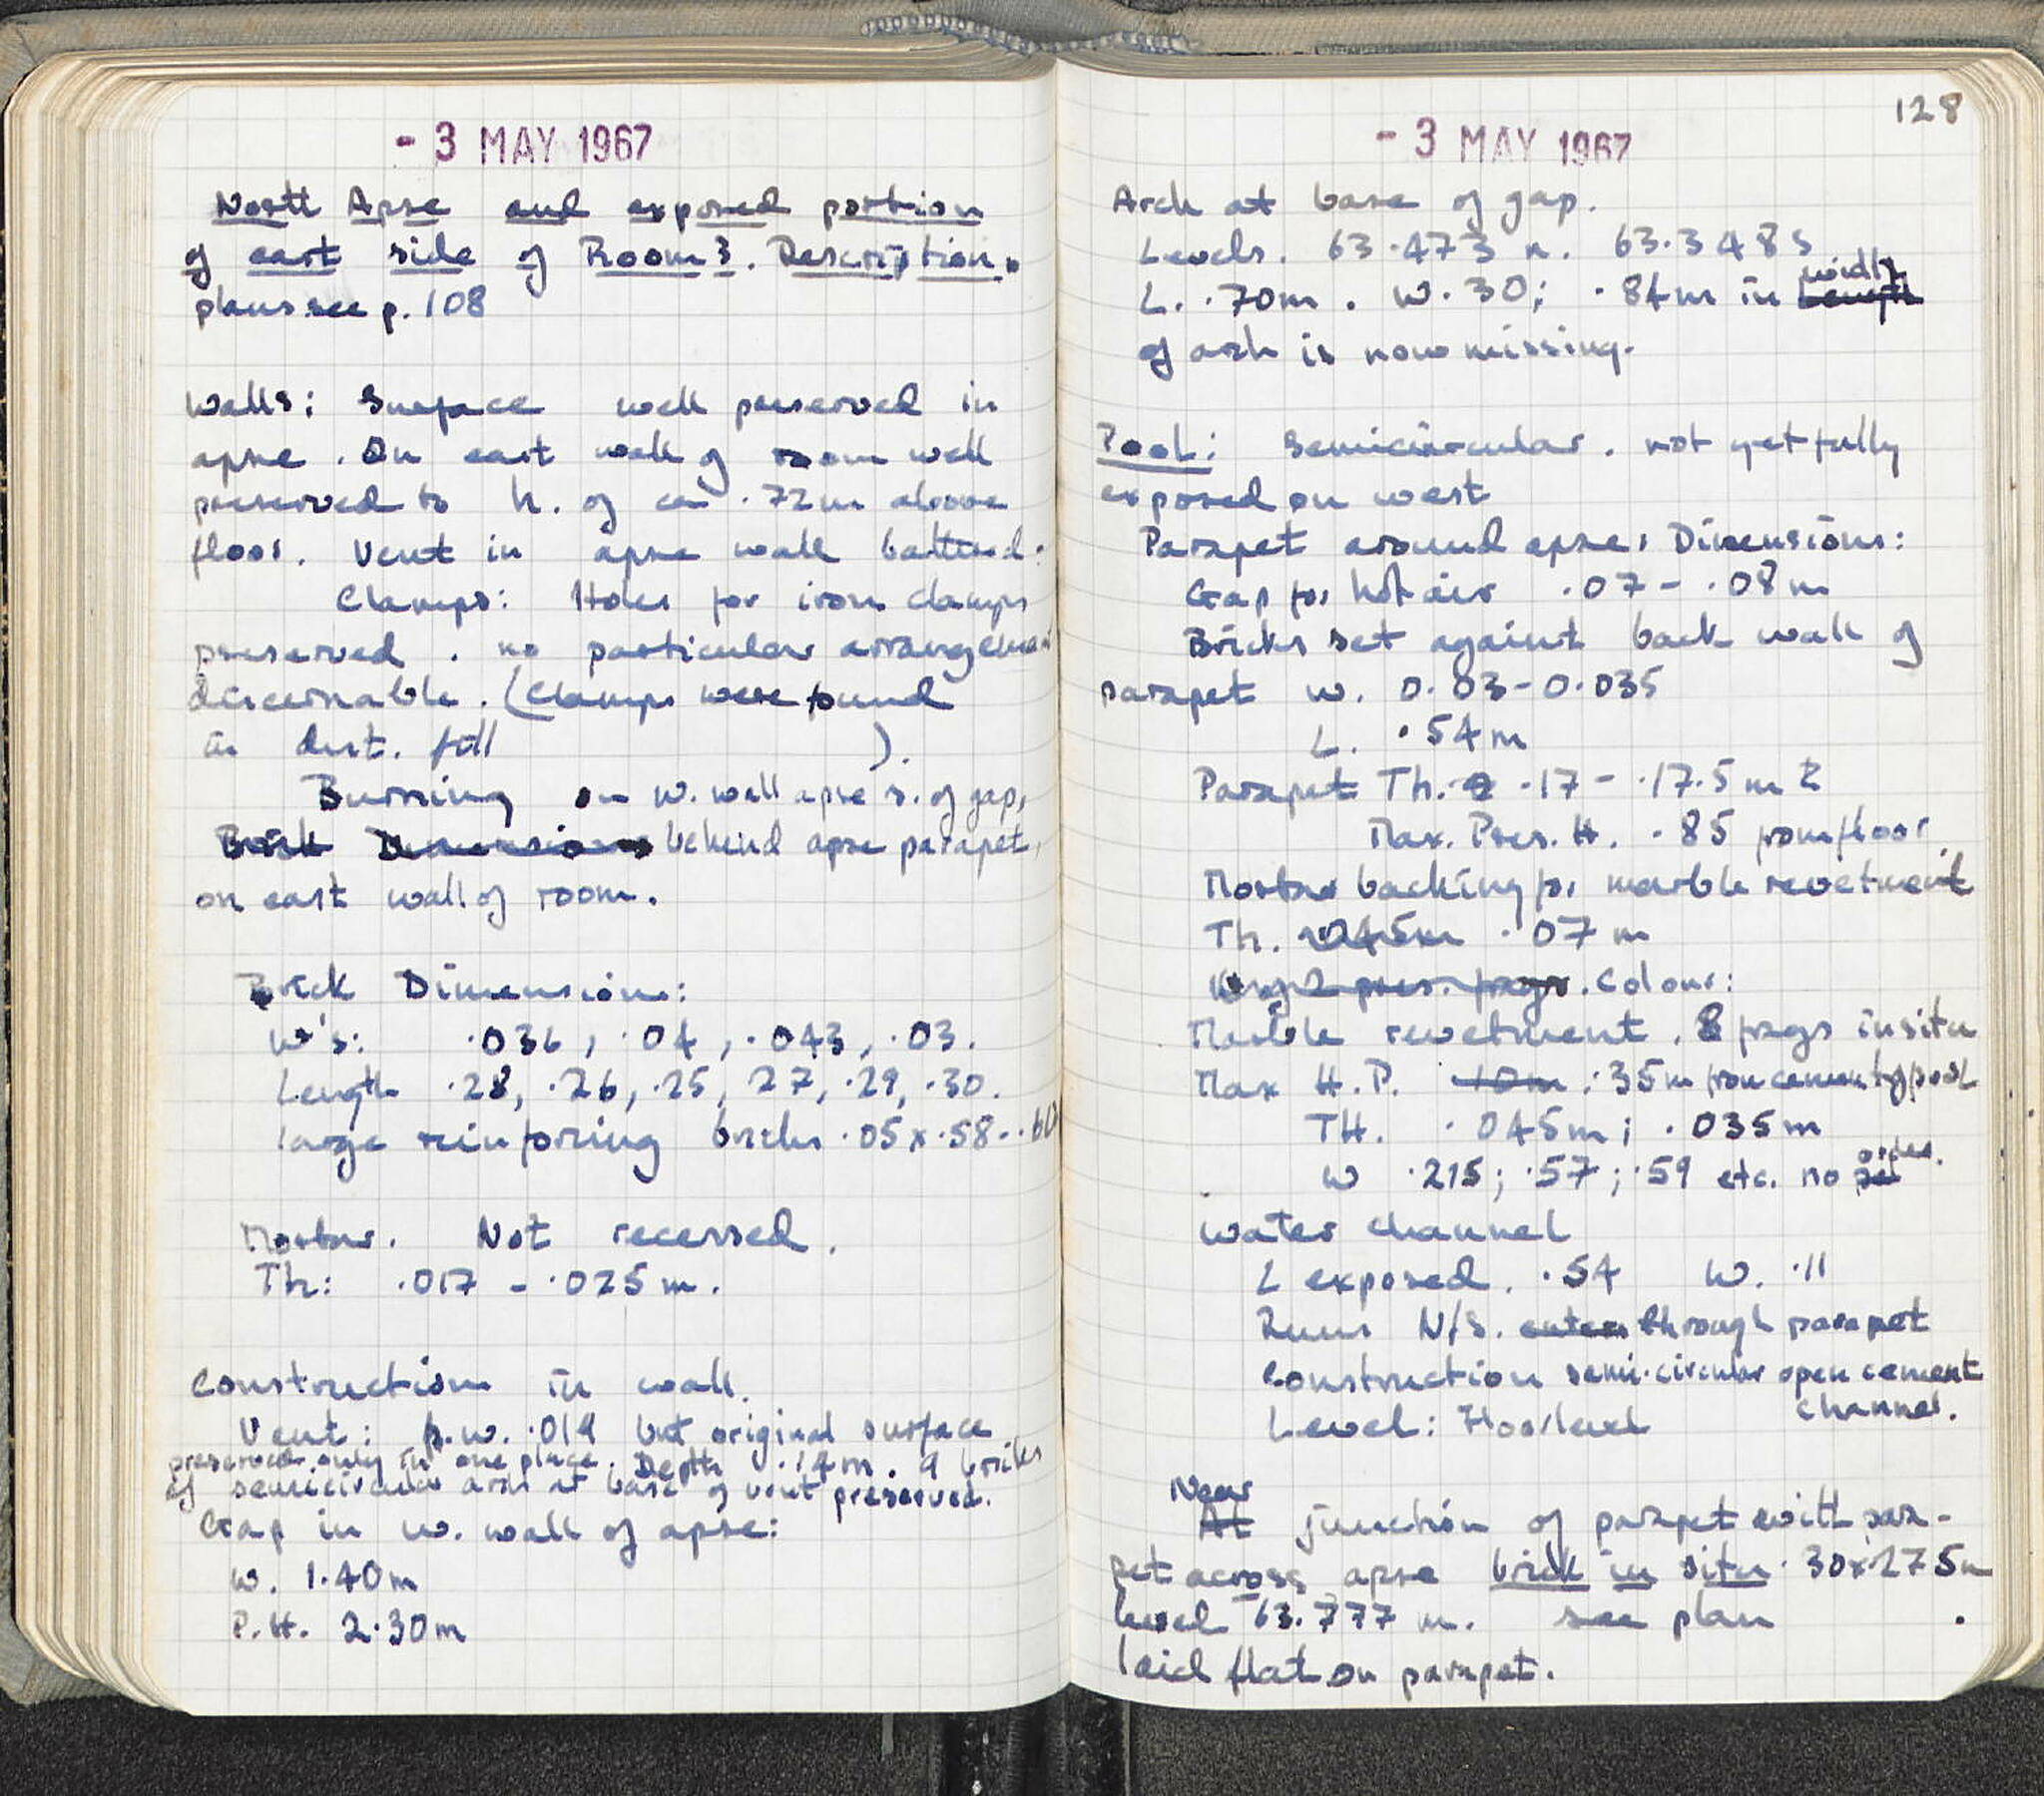 - 3 MAY 1967
North Apse and exposed portion
of east side of Room 3. Description.
plans see p. 108
Walls: Surface well preserved in
apse. On east wall of room well
preserved to h. of ca .72m above
floor. Vent in apse wall battered.
Clamps: Holes for iron clamps
preserved. no particular arrangement
discernable. (Clamps were found
in dest. fill ).
Burning on w. wall apse s. of gap,
Brick Dimensions behind apse parapet,
on east wall of room.
Brick Dimensions:
W's: .036, .04, .043, .03.
Length .28, .26, .25, 27, .29, .30.
large reinforcing bricks .05 x .58-.60
Mortar. Not recessed.
Th: .017 - .025 m.
Construction in wall.
Vent: p.w. .019 but original surface
preserved only in one place. Depth .14m. 9 bricks
of semicircular arch at base of vent preserved.
Gap in w. wall of apse:
W. 1.40m
P.H. 2.30m
128
- 3 MAY 1967
Arch at base of gap.
Levels. 63.473 n. 63.348 S
L. .70m. W. 30; .84m in length width
of arch is now missing.
Pool: Semicircular. not yet fully
exposed on west
Parapet around apse, Dimensions:
Gap for hot air .07 - .08 m
Bricks set against back wall of
parapet w. 0.03-0.035
L. .54 m
Parapet Th. .17 - .17.5 m
Max. Pres. H. .85 from floor.
Mortar backing for marble revetment
Th. .045m .07 m
Only 2 pres. frags. Colour:
Marble revetment. 8 frags in situ
Max H.P. .10m .35m from cement of pool
TH. .045m; .035m
W .215; .57; .59 etc. no order.
Water channel
L exposed. .54 W. .11
Runs N/S. through parapet
Construction semi-circular open cement
channel.
Level: Floor level
Near
At junction of parapet with para-
pet across apse brick in situ .30x.275m
level 63.777 m. see plan
laid flat on parapet.